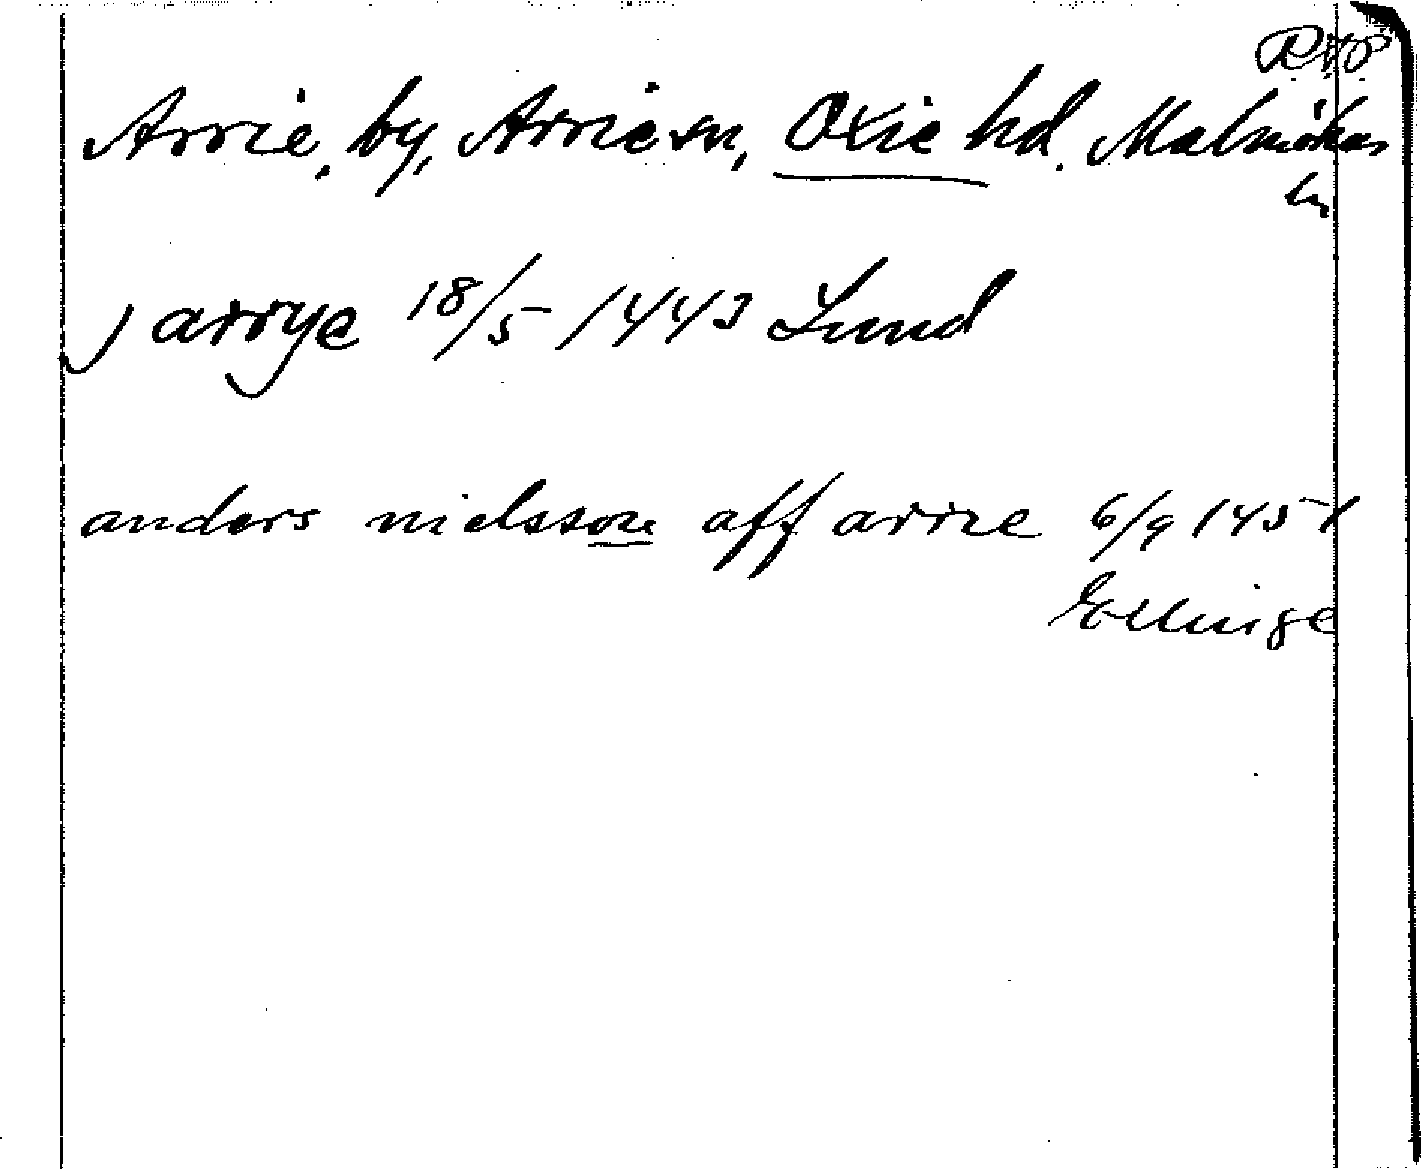 RAP
Arrie, by, Arrie sn, Oxie hd. Malmöhus
ln
j arrye 18/5 1443 Lund
anders nielssøn aff arrie 6/9 1451
Ellinge